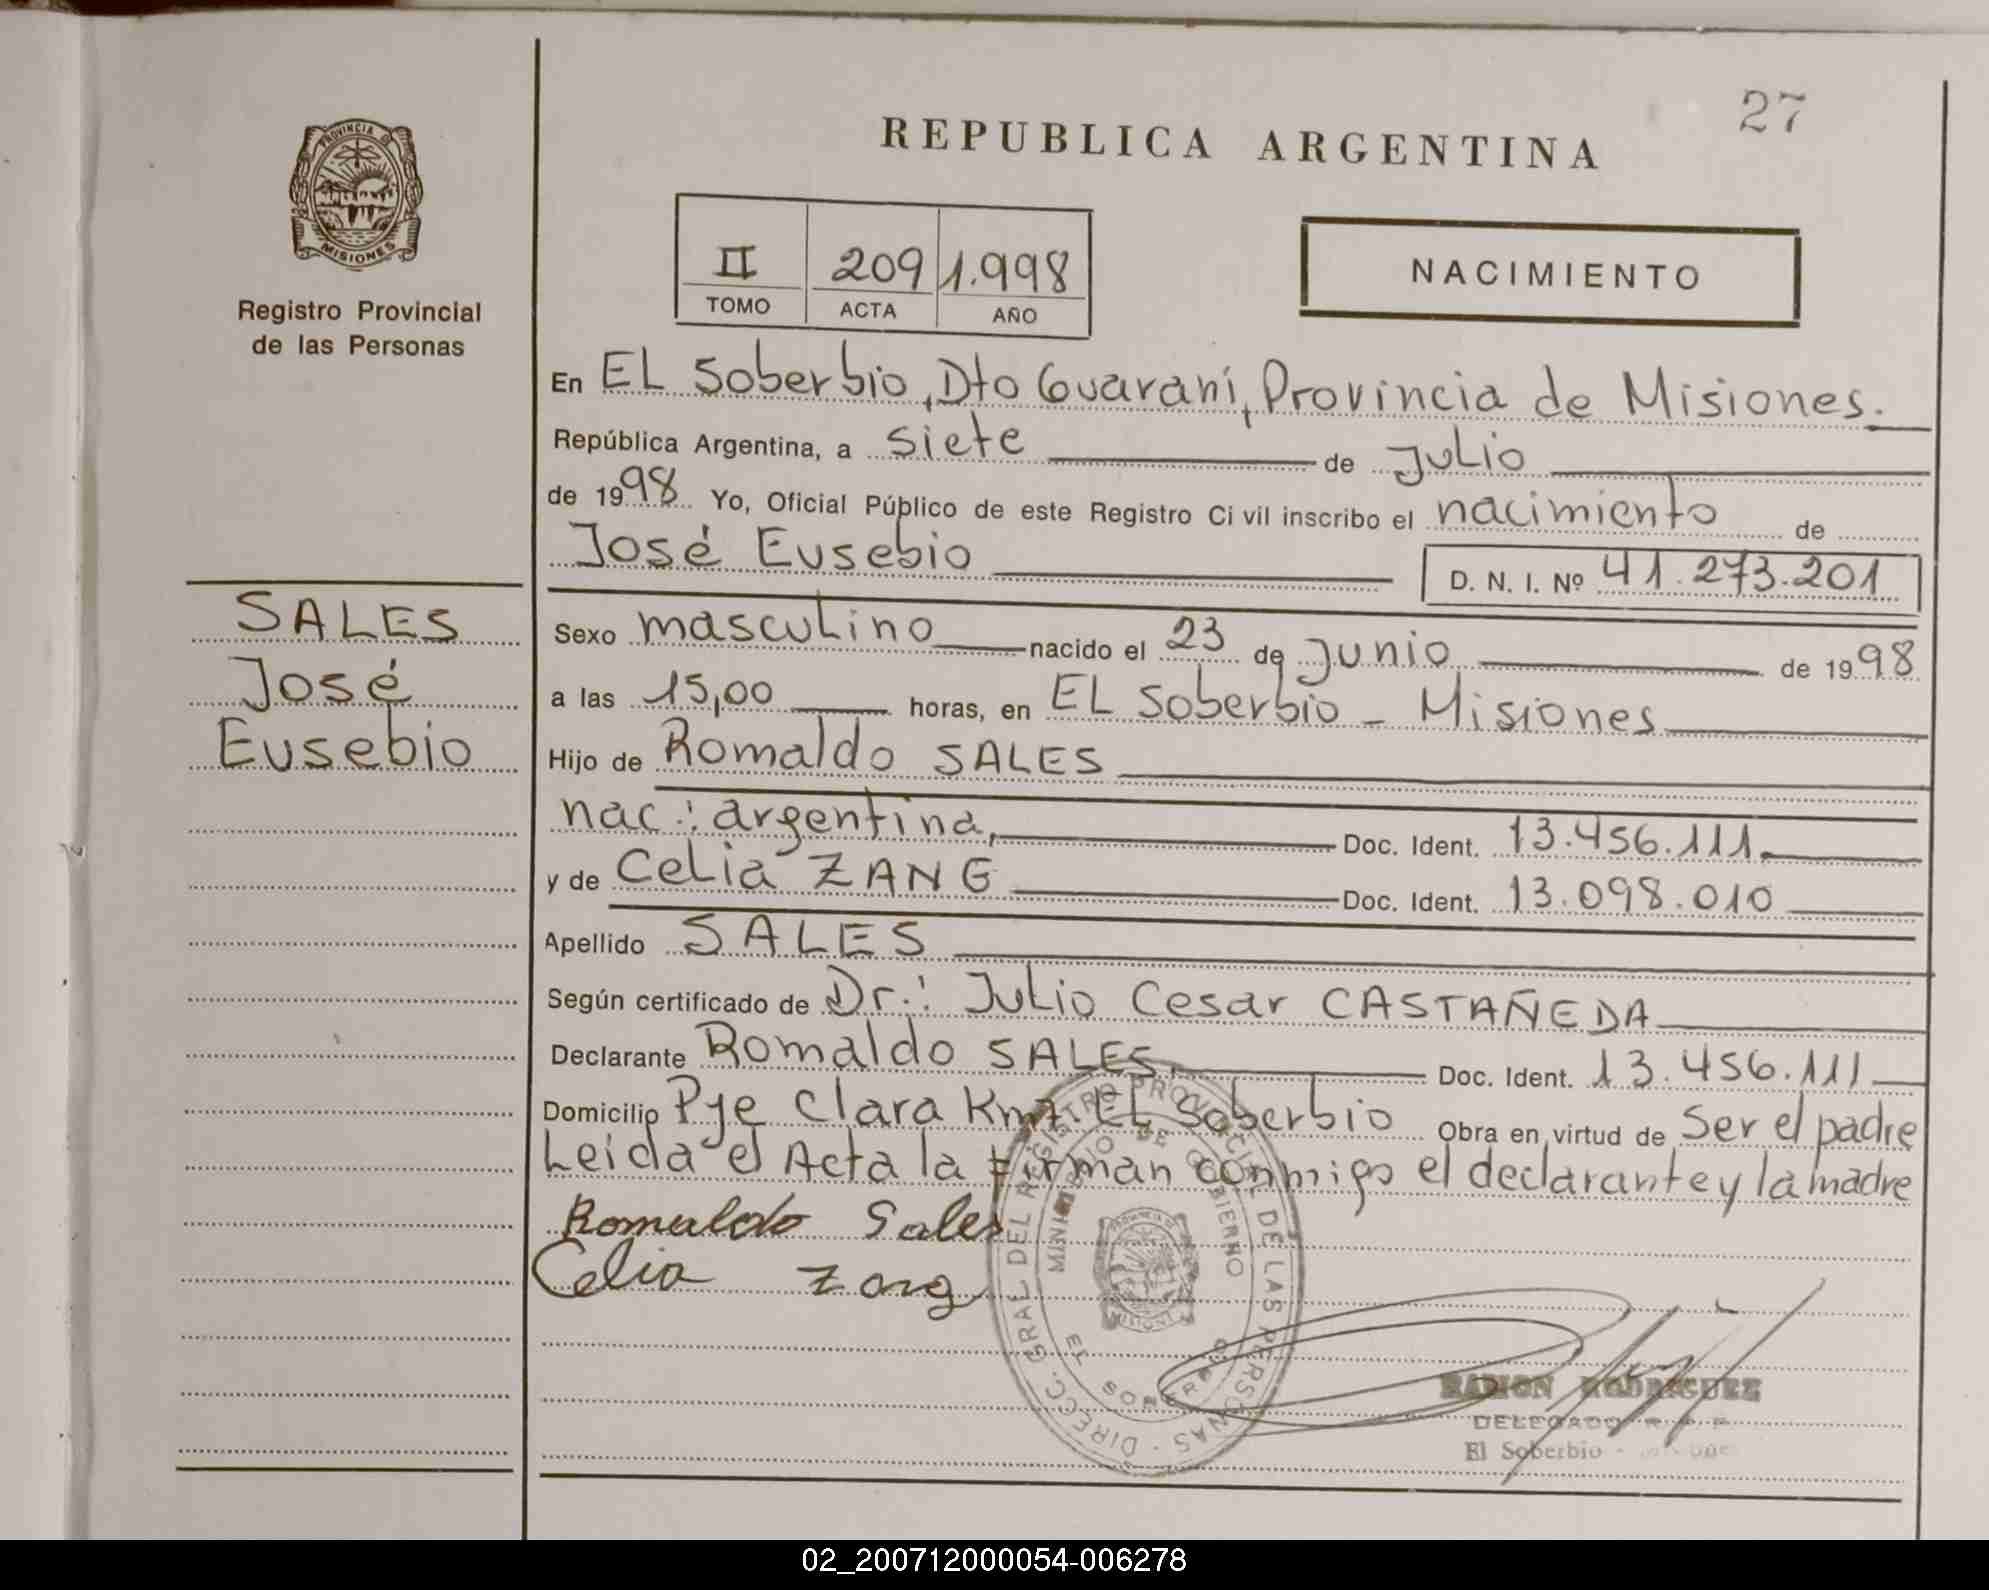 27
REPUBLICA ARGENTINA
PROVINCIA DE
MISIONES
Registro Provincial
de las Personas
II 209 1.998
TOMO ACTA AÑO
NACIMIENTO
En EL Soberbio, Dto Guaraní, Provincia de Misiones.
República Argentina, a siete de Julio
de 1998 Yo, Oficial Público de este Registro Civil inscribo el nacimiento de
José Eusebio D. N. I. Nº 41.273.201
SALES
José
Eusebio
Sexo masculino nacido el 23 de Junio de 1998
a las 15,00 horas, en EL Soberbio - Misiones
Hijo de Romaldo SALES
nac: argentina, Doc. Ident. 13.456.111
y de Celia ZANG Doc. Ident. 13.098.010
Apellido SALES
Según certificado de Dr.: Julio Cesar CASTAÑEDA
Declarante Romaldo SALES Doc. Ident. 13.456.111
Domicilio Pje Clara Km7. EL Soberbio Obra en virtud de Ser el padre
Leida el Acta la firman conmigo el declarante y la madre
Romaldo Sales
Celia Zang
DIRECC. GRAL DEL REGISTRO PROVINCIAL DE LAS PERSONAS
MINISTERIO DE GOBIERNO
EL SOBERBIO
RAMON RODRIGUEZ
DELEGADO R. P. P.
El Soberbio -
02_200712000054-006278